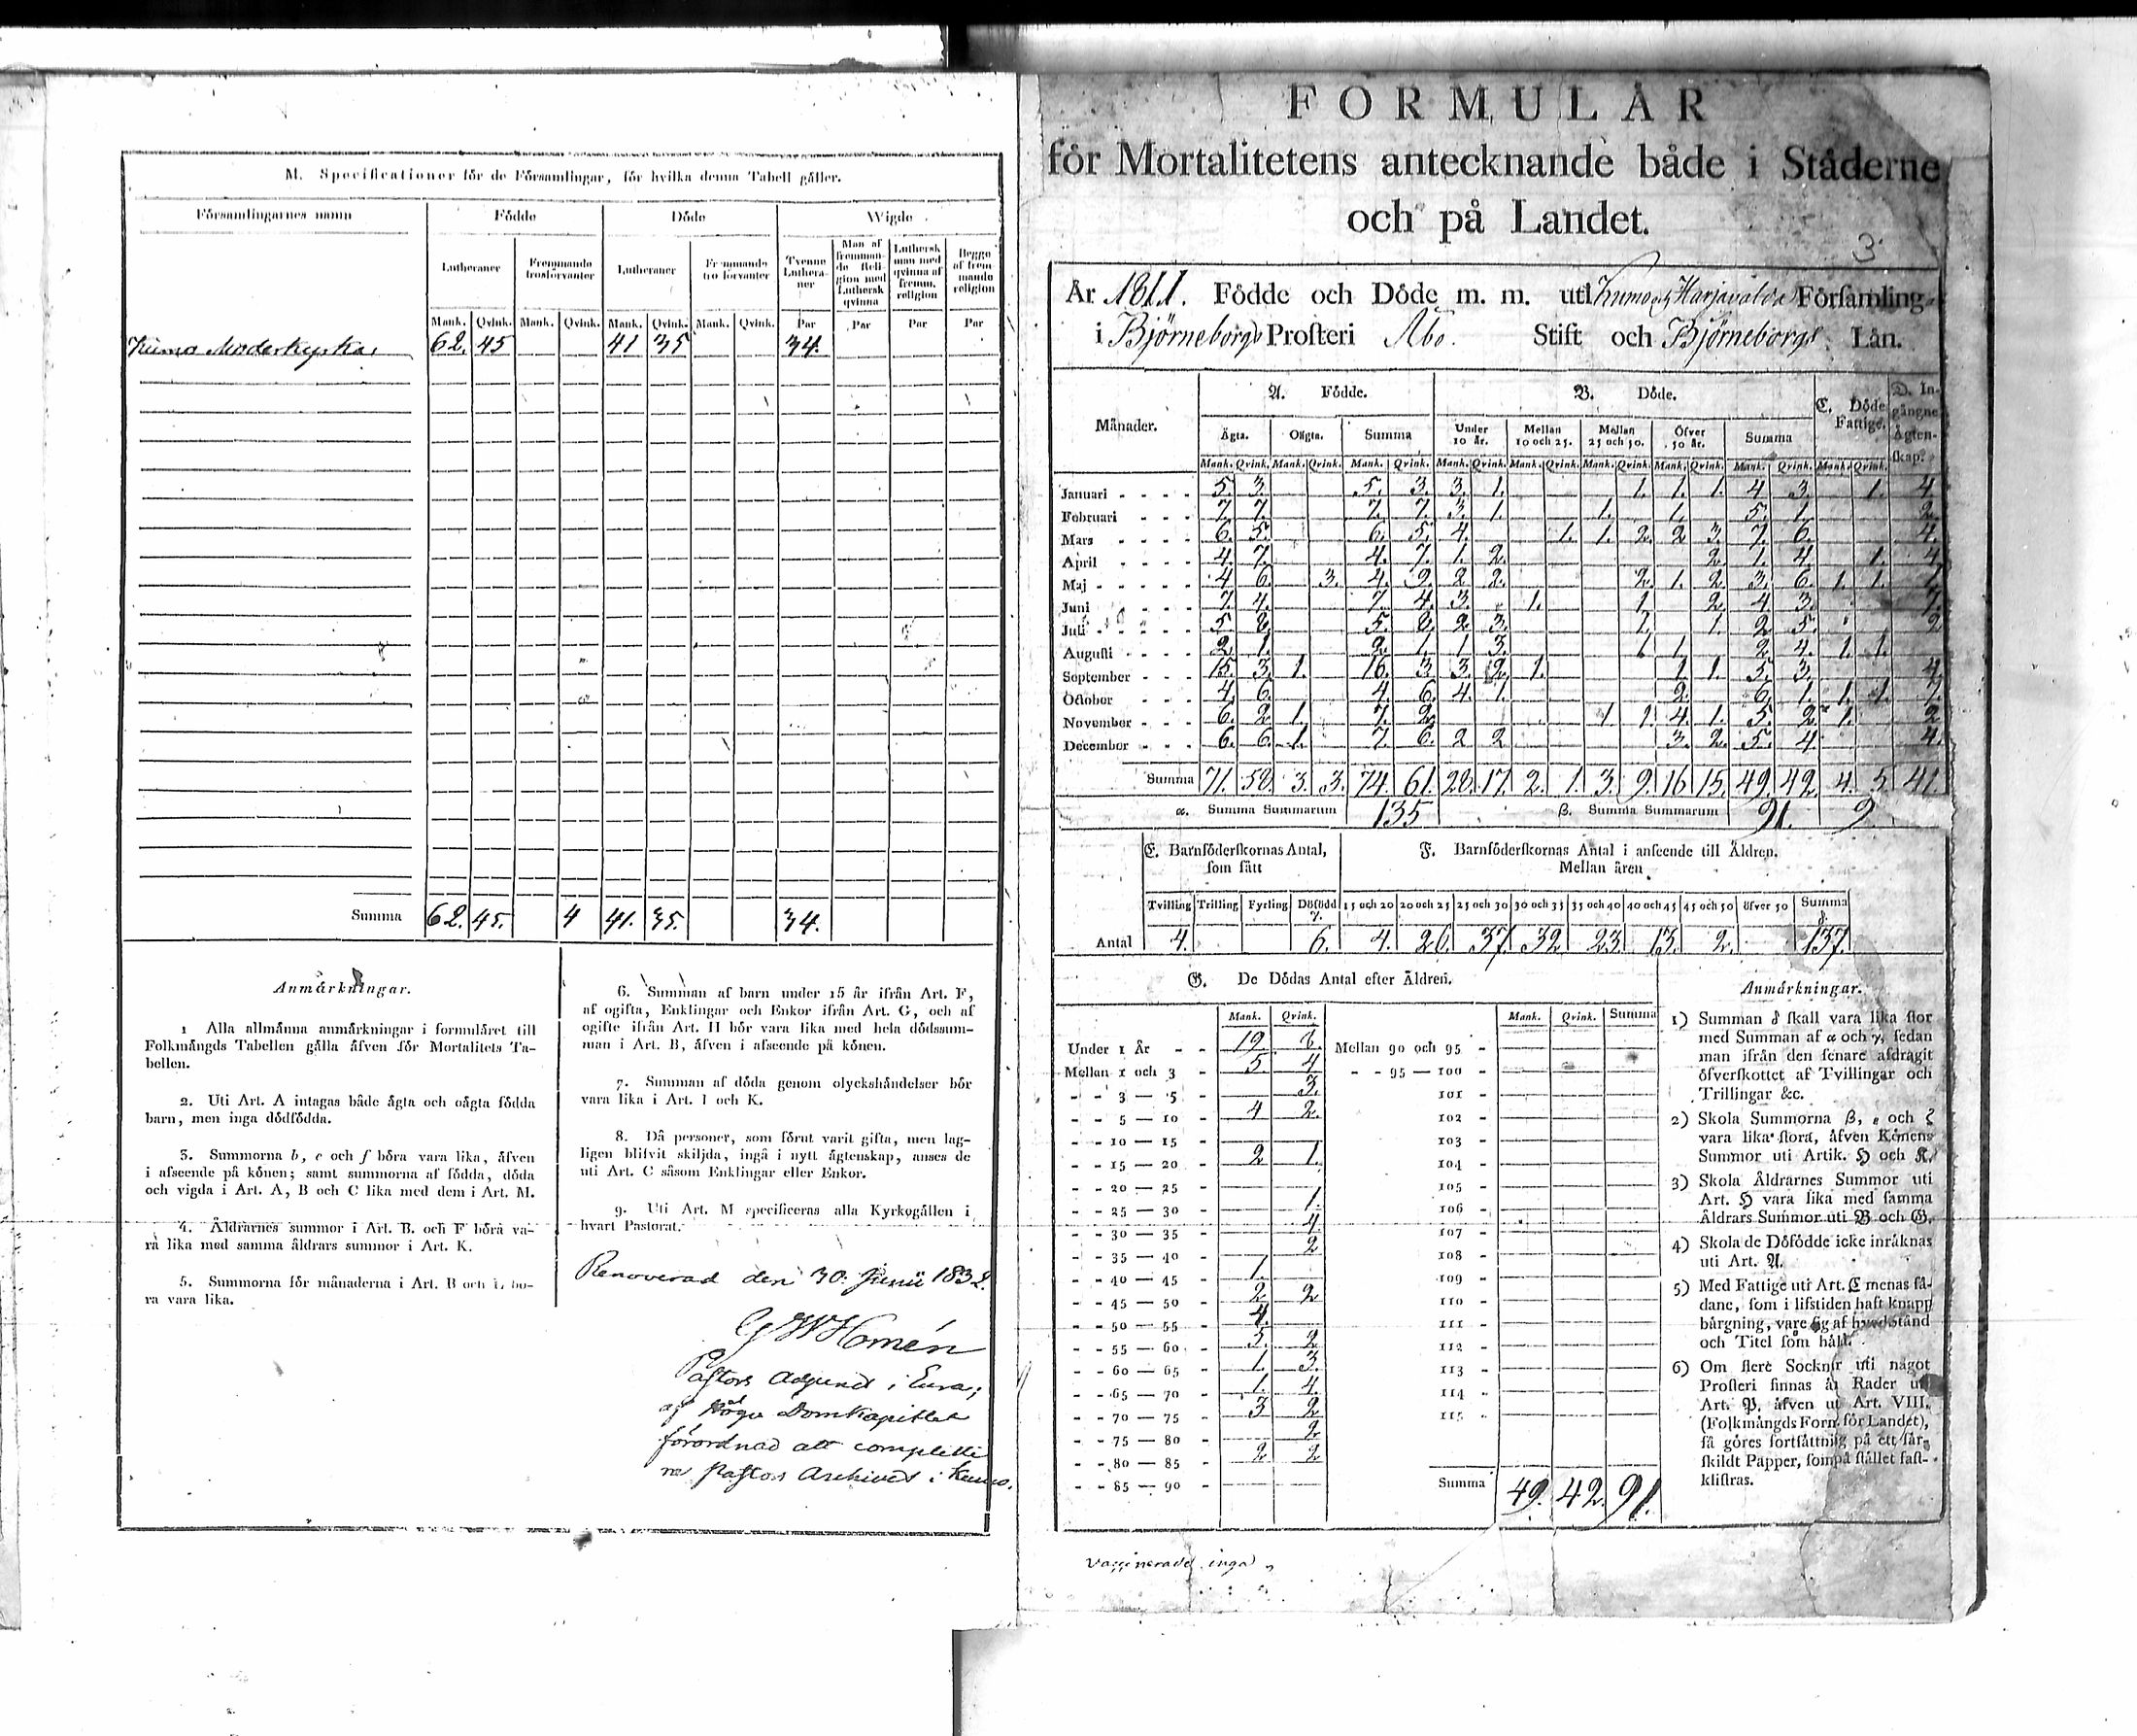 M. Specificationer för de Församlingar, för hvilka denna Tabell gäller.
Församlingarnes namn Födde Döde Wigde
Lutheraner Fremmande trosförvanter Lutheraner Fremmande troförvanter Tvenne Lutheraner Man af fremmande Religion med Luthersk qvinna Luthersk man med qvinna af fremm. religion Begge af fremmande religion
Mank. Qvink. Mank. Qvink. Mank. Qvink. Mank. Qvink. Par Par Par Par
Kumo Moderkyrka 62. 45 41 35 34.
Summa 62. 45. 4 41. 35. 34.
Anmärkningar.
1 Alla allmänna anmärkningar i formuläret till
Folkmängds Tabellen gälla äfven för Mortalitets Ta-
bellen.
2. Uti Art. A intagas både ägta och oägta födda
barn, men inga dödfödda.
3. Summorna b, c och f böra vara lika, äfven
i afseende på könen; samt summorna af födda, döda
och vigda i Art. A, B och C lika med dem i Art. M.
4. Åldrarnes summor i Art. B. och F böra va-
ra lika med samma åldrars summor i Art. K.
5. Summorna för månaderna i Art. B och L bö-
ra vara lika.
6. Summan af barn under 15 år ifrån Art. F,
af ogifta, Enklingar och Enkor ifrån Art. G, och af
ogifte ifrån Art. H bör vara lika med hela dödssum-
man i Art. B, äfven i afseende på könen.
7. Summan af döda genom olyckshändelser bör
vara lika i Art. I och K.
8. Då personer, som förut varit gifta, men lag-
ligen blifvit skiljda, ingå i nytt ägtenskap, anses de
uti Art. C såsom Enklingar eller Enkor.
9. Uti Art. M specificeras alla Kyrkogällen i
hvart Pastorat.
Renoverad den 30. Junii 1832.
G W Homén
Pastors Adjunct i Eura,
af Höga Domkapitlet
förordnad att complette
ra Pastors Archivet i Kumo.
FORMULÄR
för Mortalitetens antecknande både i Städerne
och på Landet.
3.
År 1811. Födde och Döde m. m. uti Kumo och Harjavalda Församling
i Björneborgs Prosteri Åbo. Stift och Björneborgs Län.
Månader. A. Födde. B. Döde. C. Döde Fattige. D. Ingångne Ägtenskap.
Ägta. Oägta. Summa Under 10 år. Mellan 10 och 25. Mellan 25 och 50. Öfver 50 år. Summa
Mank. Qvink. Mank. Qvink. Mank. Qvink. Mank. Qvink. Mank. Qvink. Mank. Qvink. Mank. Qvink. Mank. Qvink. Mank. Qvink.
Januari 5. 3. 5. 3. 3. 1. 1. 1. 1. 4 3. 1. 4
Februari 7. 7. 7. 7. 3. 1. 1. 1. 5. 1. 2.
Mars 6. 5. 6. 5. 4. 1. 1. 2. 2 3. 7. 6. 4.
April 4. 7. 4. 7. 1. 2. 2. 1. 4. 1. 4
Maj 4 6. 3. 4. 9. 2 2. 2. 1. 2. 3. 6. 1. 1. 1.
Juni 7. 4. 7. 4. 3. 1. 1. 2. 4. 3. 7.
Juli 5. 8. 5. 8. 2. 3. 1. 1. 2. 5. 2
Augusti 2. 1. 2. 1. 1 3. 1. 1. 2. 4. 1. 1.
September 15. 3. 1. 16. 3. 3. 2. 1. 1. 1. 5. 3. 4.
October 4. 6. 4. 6. 4. 1. 2. 6. 1. 1. 1. 7.
November 6. 2. 1. 7. 2. 1. 1. 4. 1. 5. 2. 1. 2
December 6. 6. 1. 7. 6. 2 2 3. 2. 5. 4 4.
Summa 71. 58. 3. 3. 74. 61. 28. 17. 2. 1. 3. 9. 16 15. 49. 42. 4. 5. 41.
α. Summa Summarum 135 β. Summa Summarum 91. 9
E. Barnföderskornas Antal, som fått
F. Barnföderskornas Antal i anseende till Åldren.
Mellan åren
Tvilling Trilling Fyrling Döfödd γ. 15 och 20 20 och 25 25 och 30 30 och 35 35 och 40 40 och 45 45 och 50 öfver 50 Summa δ.
Antal 4. 6. 4. 26. 37. 32 23. 13. 2. 137.
G. De Dödas Antal efter Åldren.
Mank. Qvink. Mank. Qvink. Summa
Under 1 År 19 8. Mellan 90 och 95
Mellan 1 och 3 5. 4 95 — 100
3 — 5 3. 101
5 — 10 4 2. 102
10 — 15 103
15 — 20 2 1. 104
20 — 25 105
25 — 30 1. 106
30 — 35 4. 107
35 — 40 2 108
40 — 45 1. 109
45 — 50 2 2 110
50 — 55 4. 111
55 — 60 5. 2. 112
60 — 65 1. 3. 113
65 — 70 1. 4. 114
70 — 75 3 2 115
75 — 80 2.
80 — 85 2 2
85 — 90 Summa 49. 42. 91.
Anmärkningar.
1) Summan δ skall vara lika stor
med Summan af α och γ, sedan
man ifrån den senare afdragit
öfverskottet af Tvillingar och
Trillingar &c.
2) Skola Summorna β, ε och ζ
vara lika stora, äfven Könens
Summor uti Artik. H och K.
3) Skola Åldrarnes Summor uti
Art. H vara lika med samma
Åldrars Summor uti B och G.
4) Skola de Döfödde icke inräknas
uti Art. A.
5) Med Fattige uti Art. C menas så-
dane, som i lifstiden haft knapp
bärgning, vare sig af hvad Stånd
och Titel som hälst.
6) Om flere Socknar uti något
Prosteri finnas än Rader uti
Art. P. äfven uti Art. VIII.
(Folkmängds Form. för Landet),
så göres fortsättning på ett sär-
skildt Papper, som på stället fast-
klistras.
Vaccinerade inga